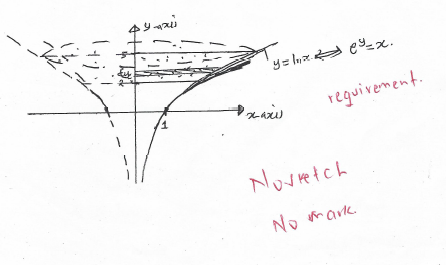 y-axis
5
y=ln x ⇒ e^y=x.
2
x-axis
1
requirement.
No sketch
No mark